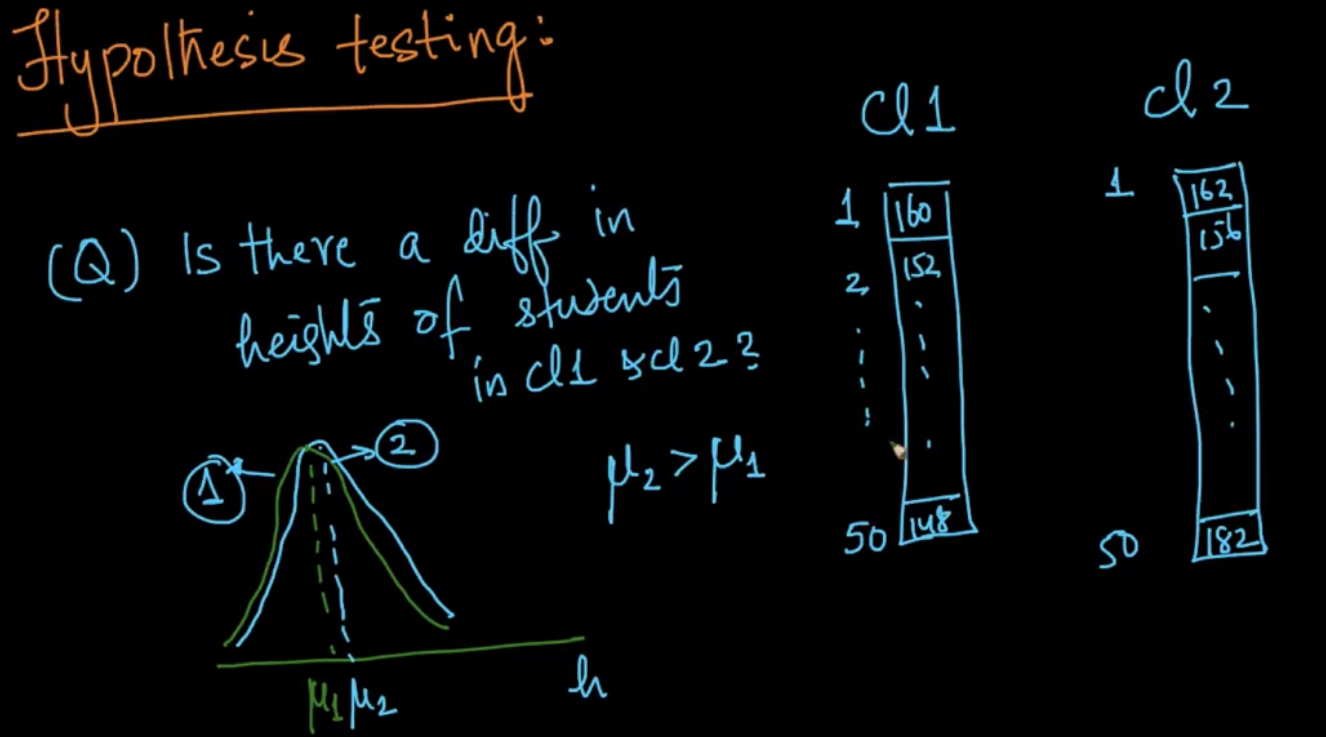 Hypothesis testing:
(Q) Is there a diff in
heights of students
in cl1 & cl 2?
μ₂ > μ₁
1
2
μ₁ μ₂
h
cl 1
1 160
2 152
50 148
cl 2
1 162
156
50 182